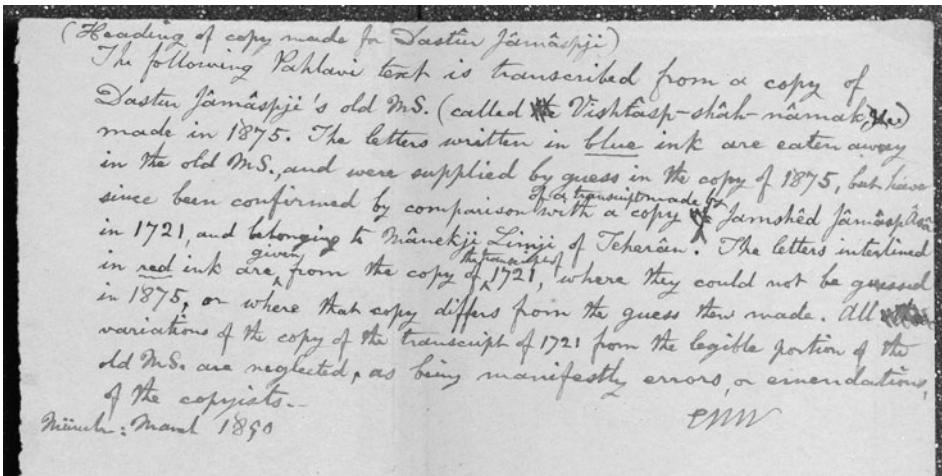 (Heading of copy made for Dastûr Jâmâspji)
The following Pahlavi text is transcribed from a copy of
Dastur Jâmâspji's old MS. (called the Vishtâsp-shâh-nâmak,
made in 1875. The letters written in blue ink are eaten away
in the old MS., and were supplied by guess in the copy of 1875, but have
since been confirmed by comparison with a copy of a transcript made by Jamshêd Jâmâsp
in 1721, and belonging to Mânekji Limji of Teherân. The letters interlined
in red ink are given from the copy of the transcript of 1721, where they could not be guessed
in 1875, or where that copy differs from the guess then made. All
variations of the copy of the transcript of 1721 from the legible portion of the
old MS. are neglected, as being manifestly errors, or emendations,
of the copyists.
Munich: March 1890
EWW